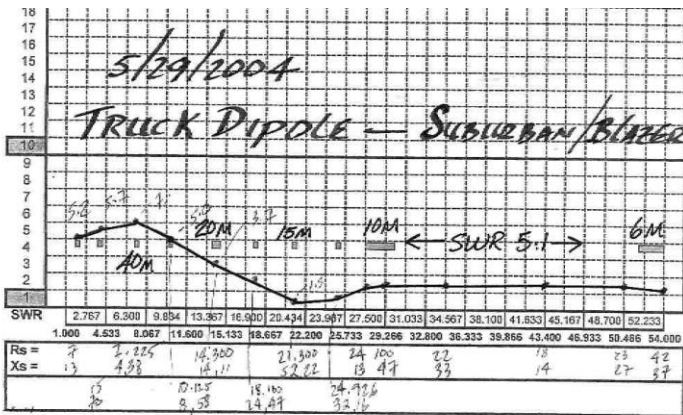 18
17
16
15
14
13
12
11
10
9
8
7
6
5
4
3
2
1
5/29/2004
TRUCK DIPOLE — SUBURBAN/BLAZER
20M 15M 10M ← SWR 5:1 → 6M
40M
SWR 2.767 6.300 9.834 13.367 16.900 20.434 23.967 27.500 31.033 34.567 38.100 41.633 45.167 48.700 52.233
1.000 4.533 8.067 11.600 15.133 18.667 22.200 25.733 29.266 32.800 36.333 39.866 43.400 46.933 50.466 54.000
Rs = 7 7.225 14.300 21.300 24 100 22 18 23 42
Xs = 13 4.38 14.11 52.22 13 47 33 14 27 37
13 10.125 18.100 24.926
8.58 24.47 32.16